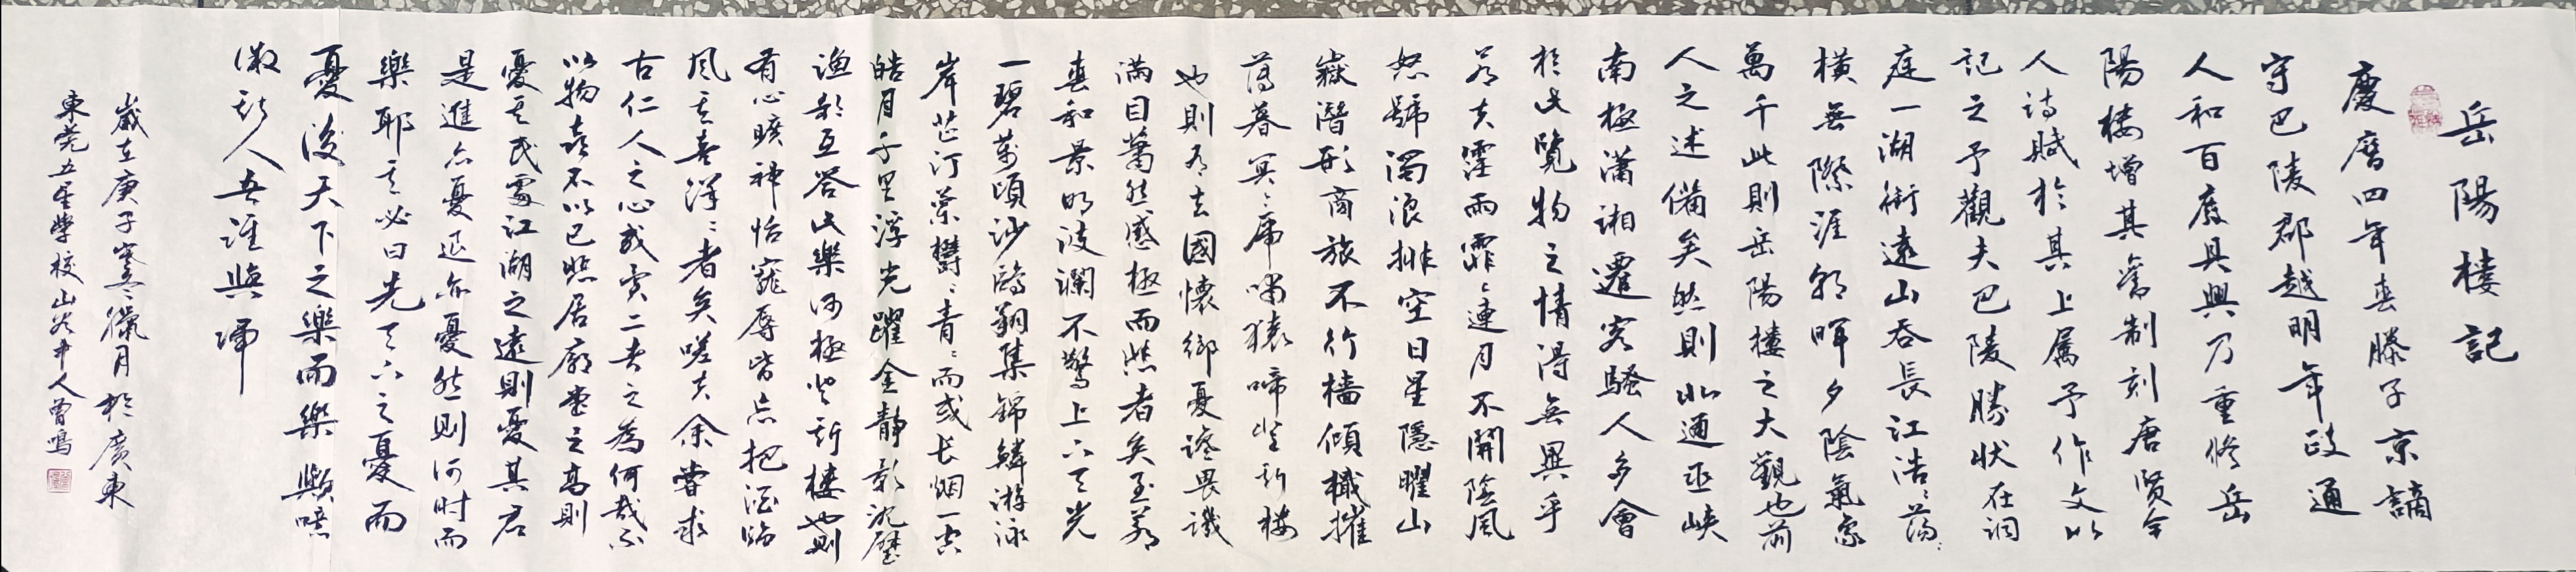 岳陽樓記
慶曆四年春滕子京謫
守巴陵郡越明年政通
人和百廢具興乃重修岳
陽樓增其舊制刻唐賢今
人詩賦於其上屬予作文以
記之予觀夫巴陵勝狀在洞
庭一湖銜遠山吞長江浩〻蕩〻
橫無際涯朝暉夕陰氣象
萬千此則岳陽樓之大觀也前
人之述備矣然則北通巫峽
南極瀟湘遷客騷人多會
於此覽物之情得無異乎
若夫霪雨霏〻連月不開陰風
怒號濁浪排空日星隱曜山
嶽潛形商旅不行檣傾檝摧
薄暮冥〻虎嘯猿啼登斯樓
也則有去國懷鄉憂讒畏譏
滿目蕭然感極而悲者矣至若
春和景明波瀾不驚上下天光
一碧萬頃沙鷗翔集錦鱗游泳
岸芷汀蘭鬱〻青〻而或長烟一空
皓月千里浮光躍金靜影沉璧
漁歌互答此樂何極登斯樓也則
有心曠神怡寵辱皆忘把酒臨
風其喜洋〻者矣嗟夫余嘗求
古仁人之心或異二者之為何哉不
以物喜不以己悲居廟堂之高則
憂其民處江湖之遠則憂其君
是進亦憂退亦憂然則何时而
樂耶其必曰先天下之憂而
憂後天下之樂而樂歟噫
微斯人吾誰與歸
歲在庚子寒冬臘月於廣東
東莞五星學校山谷中人曾鳴